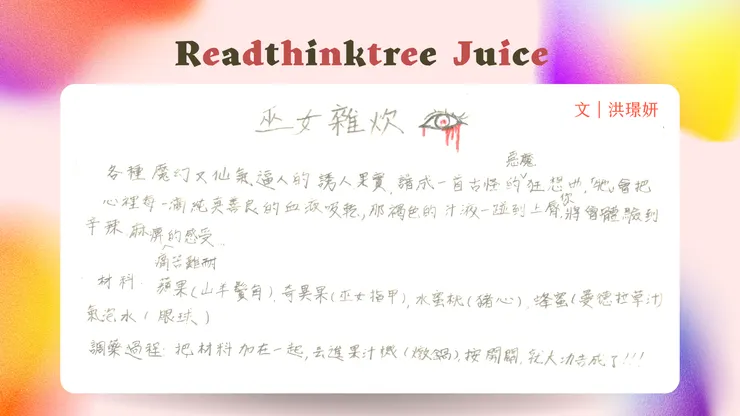 Readthinktree Juice
文 | 洪璟妍
巫女雜炊
惡魔
各種魔幻又仙氣逼人的誘人果實,譜成一首古怪的狂想曲,「牠」會把
心裡每一滴純真善良的血液吸乾,那褐色的汁液一碰到上唇,你將會體驗到
辛辣麻痺的感受…
痛苦難耐
材料:蘋果(山羊鬢角),奇異果(巫女指甲),水蜜桃(豬心),蜂蜜(曼德拉草汁)
氣泡水(眼球)
調藥過程:把材料加在一起,丟進果汁機(燉鍋),按開關,就大功告成了!!!